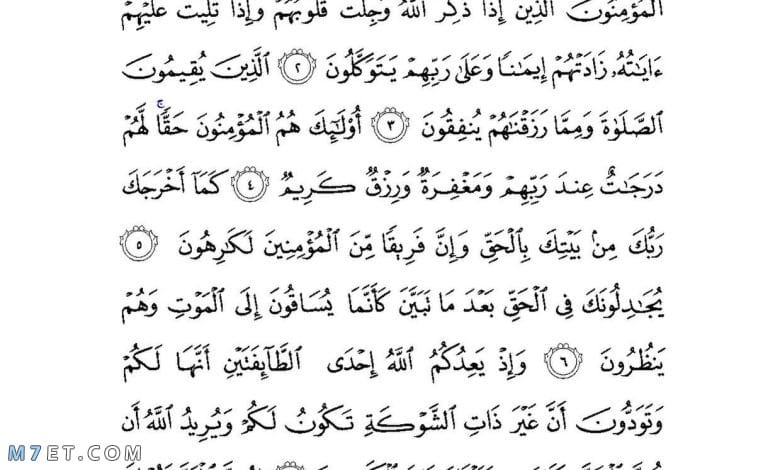 ٱلۡمُؤۡمِنُونَ ٱلَّذِينَ إِذَا ذُكِرَ ٱللَّهُ وَجِلَتۡ قُلُوبُهُمۡ وَإِذَا تُلِيَتۡ عَلَيۡهِمۡ
ءَايَٰتُهُۥ زَادَتۡهُمۡ إِيمَٰنٗا وَعَلَىٰ رَبِّهِمۡ يَتَوَكَّلُونَ ٢ ٱلَّذِينَ يُقِيمُونَ
ٱلصَّلَوٰةَ وَمِمَّا رَزَقۡنَٰهُمۡ يُنفِقُونَ ٣ أُوْلَٰٓئِكَ هُمُ ٱلۡمُؤۡمِنُونَ حَقّٗاۚ لَّهُمۡ
دَرَجَٰتٌ عِندَ رَبِّهِمۡ وَمَغۡفِرَةٞ وَرِزۡقٞ كَرِيمٞ ٤ كَمَآ أَخۡرَجَكَ
رَبُّكَ مِنۢ بَيۡتِكَ بِٱلۡحَقِّ وَإِنَّ فَرِيقٗا مِّنَ ٱلۡمُؤۡمِنِينَ لَكَٰرِهُونَ ٥
يُجَٰدِلُونَكَ فِي ٱلۡحَقِّ بَعۡدَ مَا تَبَيَّنَ كَأَنَّمَا يُسَاقُونَ إِلَى ٱلۡمَوۡتِ وَهُمۡ
يَنظُرُونَ ٦ وَإِذۡ يَعِدُكُمُ ٱللَّهُ إِحۡدَى ٱلطَّآئِفَتَيۡنِ أَنَّهَا لَكُمۡ
وَتَوَدُّونَ أَنَّ غَيۡرَ ذَاتِ ٱلشَّوۡكَةِ تَكُونُ لَكُمۡ وَيُرِيدُ ٱللَّهُ أَن
M7ET.COM